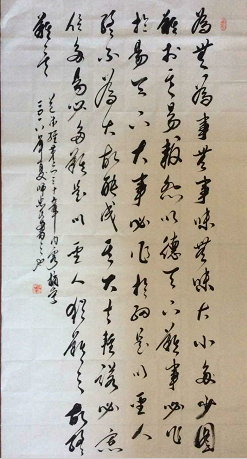 為無為事無事味無味大小多少圖
難於其易報怨以德天下難事必作
於易天下大事必作於細是以聖人
終不為大故能成其大夫輕諾必寡
信多易必多難是以聖人猶難之故終
難矣
道德經第六十三章
二〇一八年夏